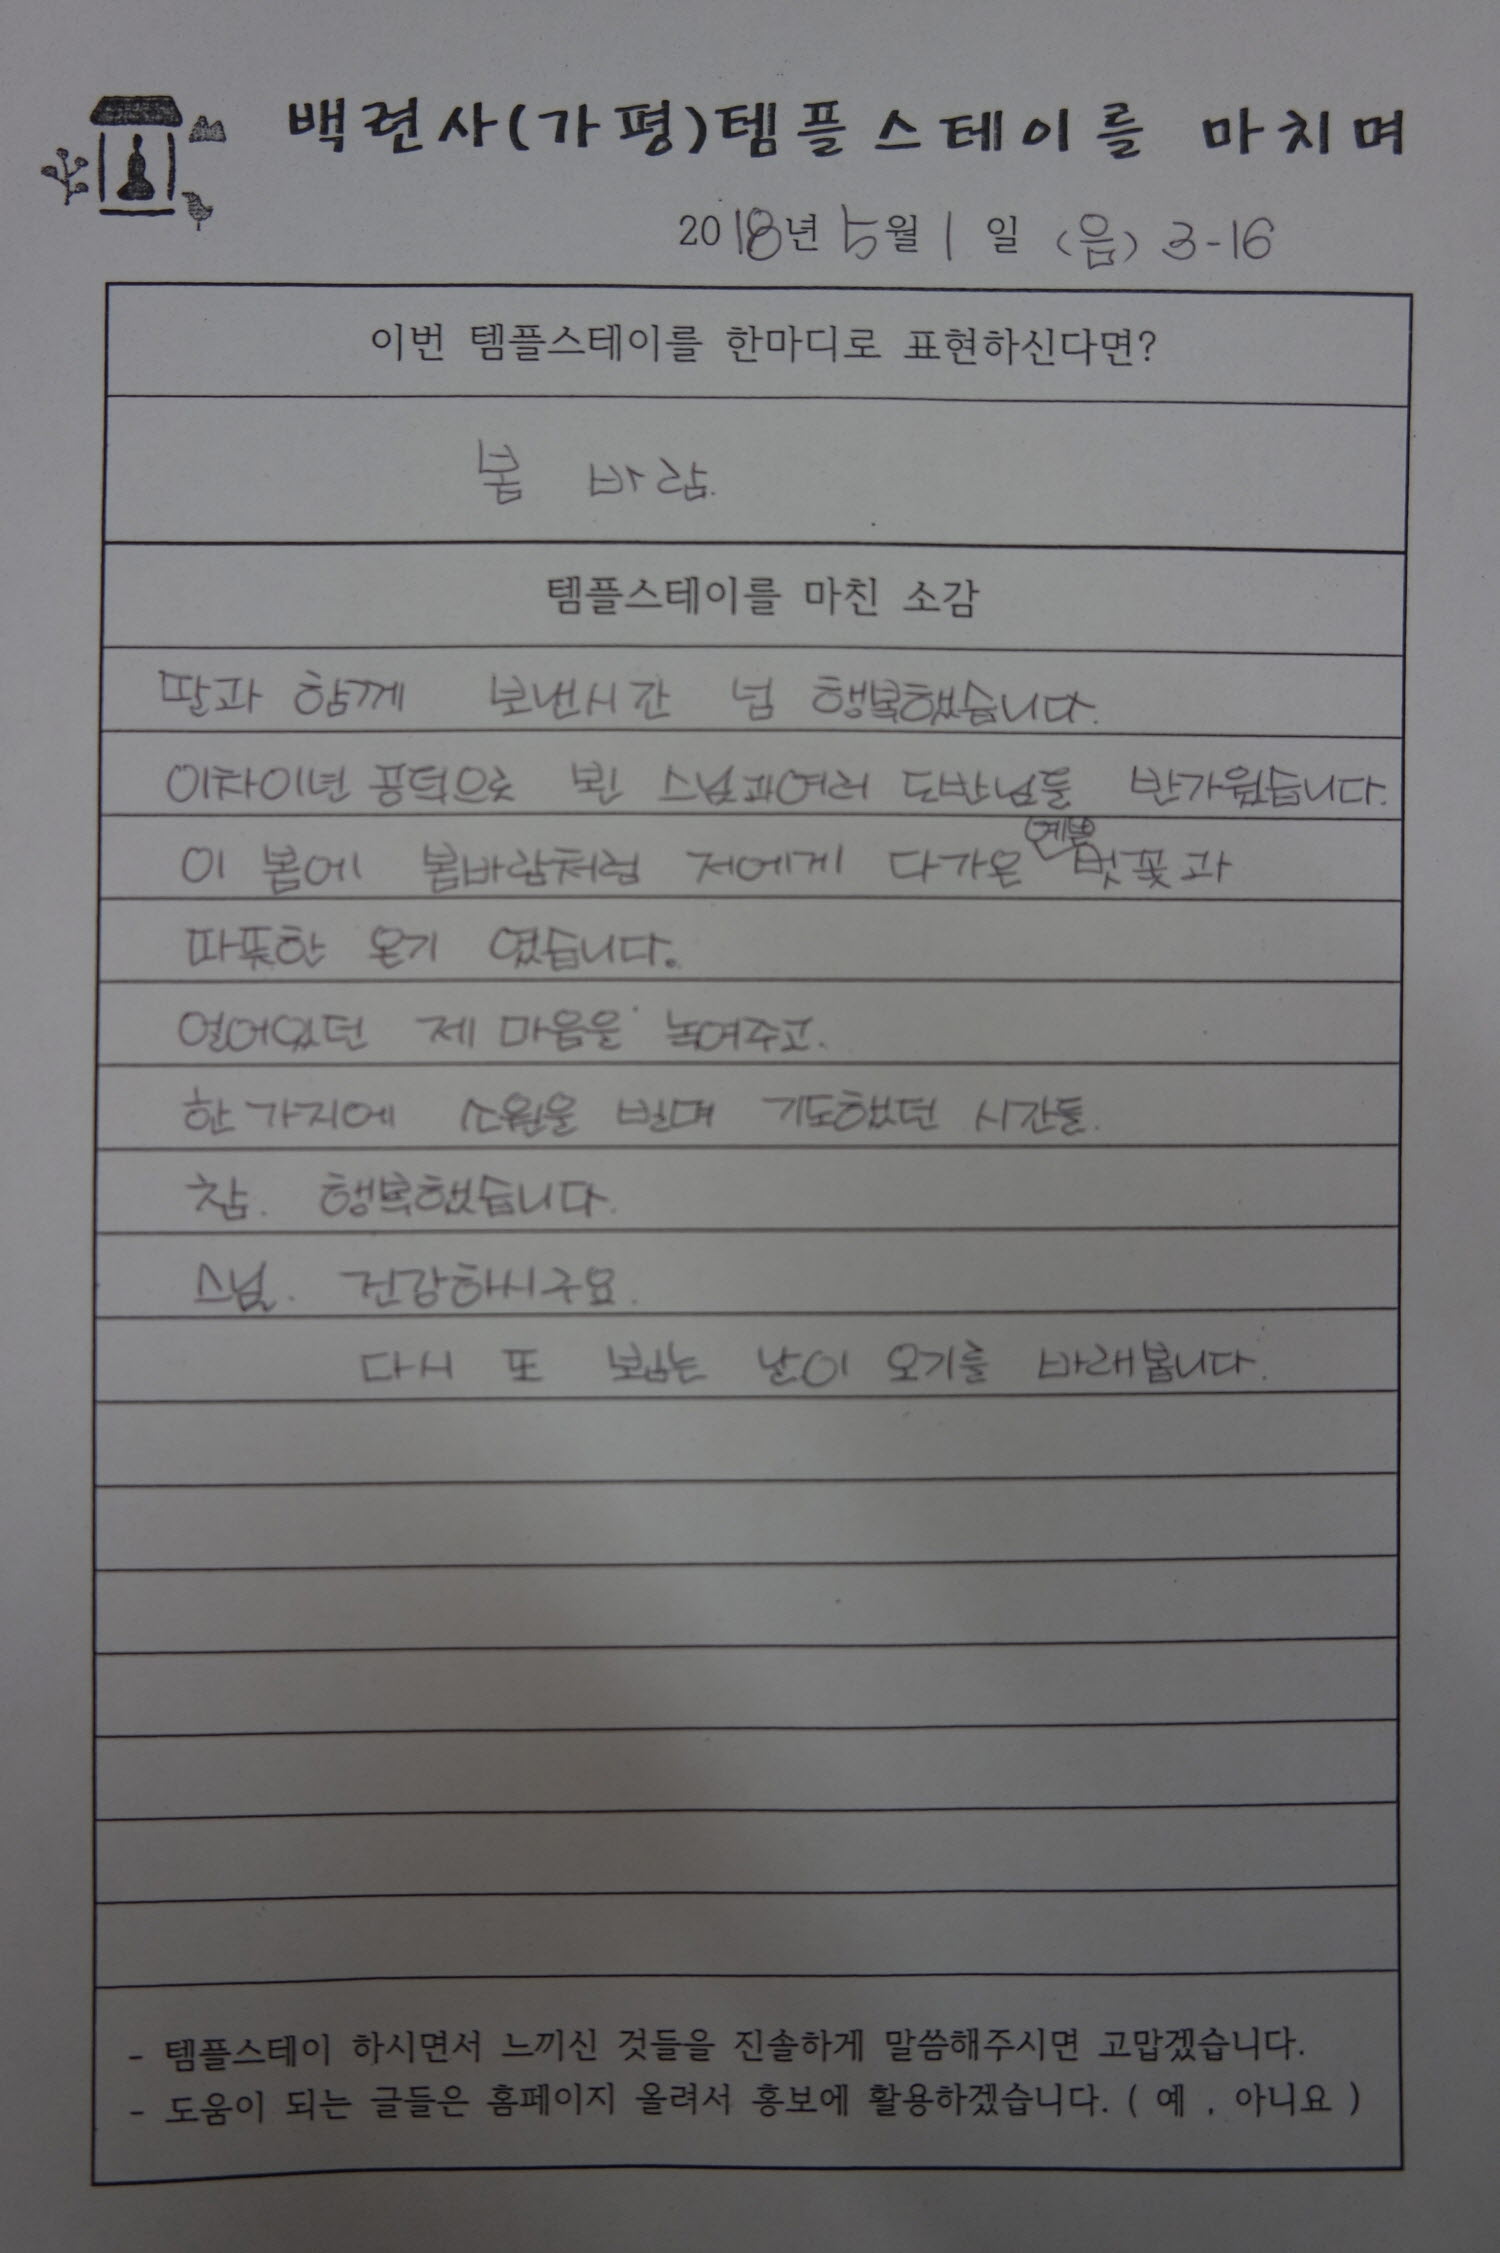 백련사(가평)템플스테이를 마치며
2018년 5월 1일 (음) 3-16
이번 템플스테이를 한마디로 표현하신다면?
봄 바람.
템플스테이를 마친 소감
딸과 함께 보낸시간 넘 행복했습니다.
이차이년 공덕으로 뵌 스님과여러 도반님들 반가웠습니다.
이 봄에 봄바람처럼 저에게 다가온 예쁜 벗꽃과
따뜻한 온기 였습니다.
얼어있던 제 마음을 녹여주고.
한가지에 소원을 빌며 기도했던 시간들.
참. 행복했습니다.
스님. 건강하시구요.
다시 또 뵙는 날이 오기를 바래봅니다.
- 템플스테이 하시면서 느끼신 것들을 진솔하게 말씀해주시면 고맙겠습니다.
- 도움이 되는 글들은 홈페이지 올려서 홍보에 활용하겠습니다. ( 예 , 아니요 )